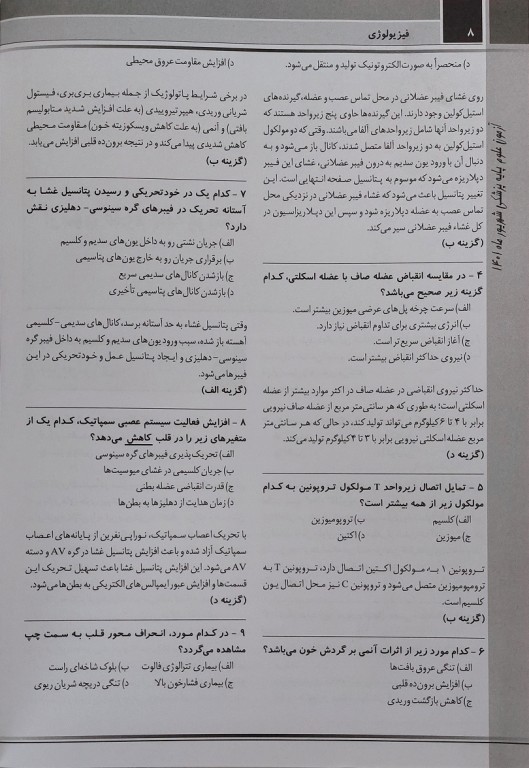 ۸
فیزیولوژی
آزمون علوم پایه پزشکی شهریور ماه ۱۴۰۱
د) منحصراً به صورت الکتروتونیک تولید و منتقل می‌شود.
روی غشای فیبر عضلانی در محل تماس عصب و عضله، گیرنده‌های
استیل‌کولین وجود دارند. این گیرنده‌ها حاوی پنج زیرواحد هستند که
دو زیرواحد آنها شامل زیرواحدهای آلفا می‌باشند. وقتی که دو مولکول
استیل‌کولین به دو زیرواحد آلفا متصل شدند، کانال باز می‌شود و به
دنبال آن با ورود یون سدیم به درون فیبر عضلانی، غشای این فیبر
دپلاریزه می‌شود که موسوم به پتانسیل صفحه انتهایی است. این
تغییر پتانسیل باعث می‌شود که غشاء فیبر عضلانی در نزدیکی محل
تماس عصب به عضله دپلاریزه شود و سپس این دپلاریزاسیون در
کل غشاء فیبر عضلانی سیر می‌کند.
(گزینه ب)
۴ - در مقایسه انقباض عضله صاف با عضله اسکلتی، کدام
گزینه زیر صحیح می‌باشد؟
الف) سرعت چرخه پل‌های عرضی میوزین بیشتر است.
ب) انرژی بیشتری برای تداوم انقباض نیاز دارد.
ج) آغاز انقباض سریع‌تر است.
د) نیروی حداکثر انقباض بیشتر است.
حداکثر نیروی انقباضی در عضله صاف در اکثر موارد بیشتر از عضله
اسکلتی است؛ به طوری که هر سانتی‌متر مربع از عضله صاف نیرویی
برابر با ۴ تا ۶ کیلوگرم می‌تواند تولید کند، در حالی که هر سانتی‌متر
مربع عضله اسکلتی نیرویی برابر با ۳ تا ۴ کیلوگرم تولید می‌کند.
(گزینه د)
۵ - تمایل اتصال زیرواحد T مولکول تروپونین به کدام
مولکول زیر از همه بیشتر است؟
الف) کلسیم ب) تروپومیوزین
ج) میوزین د) اکتین
تروپونین I به مولکول اکتین اتصال دارد، تروپونین T به
تروپومیوزین متصل می‌شود و تروپونین C نیز محل اتصال یون
کلسیم است.
(گزینه ب)
۶ - کدام مورد زیر از اثرات آنمی بر گردش خون می‌باشد؟
الف) تنگی عروق بافت‌ها
ب) افزایش برون‌ده قلبی
ج) کاهش بازگشت وریدی
د) افزایش مقاومت عروق محیطی
در برخی شرایط پاتولوژیک از جمله بیماری بری‌بری، فیستول
شریانی وریدی، هیپرتیروییدی (به علت افزایش شدید متابولیسم
بافتی) و آنمی (به علت کاهش ویسکوزیته خون) مقاومت محیطی
کاهش شدیدی پیدا می‌کند و در نتیجه برون‌ده قلبی افزایش می‌یابد.
(گزینه ب)
۷ - کدام یک در خودتحریکی و رسیدن پتانسیل غشا به
آستانه تحریک در فیبرهای گره سینوسی- دهلیزی نقش
دارد؟
الف) جریان نشتی رو به داخل یون‌های سدیم و کلسیم
ب) برقراری جریان رو به خارج یون‌های پتاسیمی
ج) باز شدن کانال‌های سدیمی سریع
د) باز شدن کانال‌های پتاسیمی تأخیری
وقتی پتانسیل غشاء به حد آستانه برسد، کانال‌های سدیمی-کلسیمی
آهسته باز شده، سبب ورود یون‌های سدیم و کلسیم به داخل فیبر گره
سینوسی- دهلیزی و ایجاد پتانسیل عمل و خودتحریکی در این
فیبرها می‌شود.
(گزینه الف)
۸ - افزایش فعالیت سیستم عصبی سمپاتیک، کدام یک از
متغیرهای زیر را در قلب کاهش می‌دهد؟
الف) تحریک‌پذیری فیبرهای گره سینوسی
ب) جریان کلسیمی در غشای میوسیت‌ها
ج) قدرت انقباضی عضله بطنی
د) زمان هدایت از دهلیزها به بطن‌ها
با تحریک اعصاب سمپاتیک، نوراپی‌نفرین از پایانه‌های اعصاب
سمپاتیک آزاد شده و باعث افزایش پتانسیل غشا در گره AV و دسته
AV می‌شود. این افزایش پتانسیل غشا باعث تسهیل تحریک این
قسمت‌ها و افزایش عبور ایمپالس‌های الکتریکی به بطن‌ها می‌شود.
(گزینه د)
۹ - در کدام مورد، انحراف محور قلب به سمت چپ
مشاهده می‌گردد؟
الف) بیماری تترالوژی فالوت ب) بلوک شاخه‌ای راست
ج) بیماری فشارخون بالا د) تنگی دریچه شریان ریوی